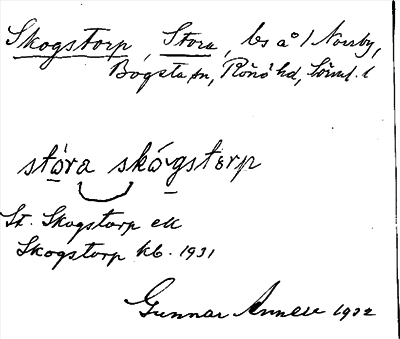 Skogstorp, Stora, ls å / Norrby,
Bogsta sn, Rönö hd, Sörml. l
stóra skógstorp
St. Skogstorp ek
Skogstorp kb. 1931
Gunnar 1932